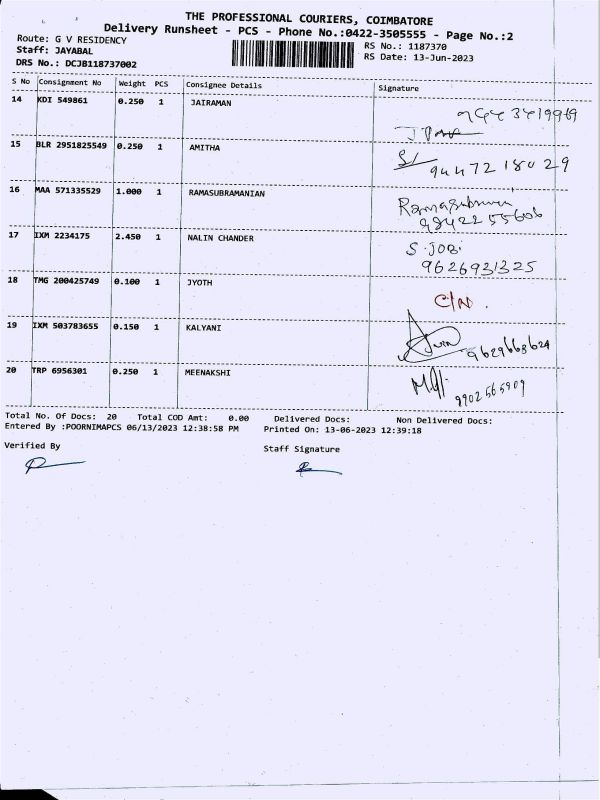 THE PROFESSIONAL COURIERS, COIMBATORE
Delivery Runsheet - PCS - Phone No.:0422-3505555 - Page No.:2
Route: G V RESIDENCY
RS No.: 1187370
Staff: JAYABAL
RS Date: 13-Jun-2023
DRS No.: DCJB118737002
S No Consignment No Weight PCS Consignee Details Signature
14 KDI 549861 0.250 1 JAIRAMAN
15 BLR 2951825549 0.250 1 AMITHA
9447218029
16 MAA 571335529 1.000 1 RAMASUBRAMANIAN
9842255606
17 IXM 2234175 2.450 1 NALIN CHANDER S.JOBI
9626931325
18 TMG 200425749 0.100 1 JYOTH
C/N.
19 IXM 503783655 0.150 1 KALYANI
9629663624
20 TRP 6956301 0.250 1 MEENAKSHI
9902565909
Total No. Of Docs: 20 Total COD Amt: 0.00 Delivered Docs: Non Delivered Docs:
Entered By :POORNIMAPCS 06/13/2023 12:38:58 PM Printed On: 13-06-2023 12:39:18
Verified By Staff Signature